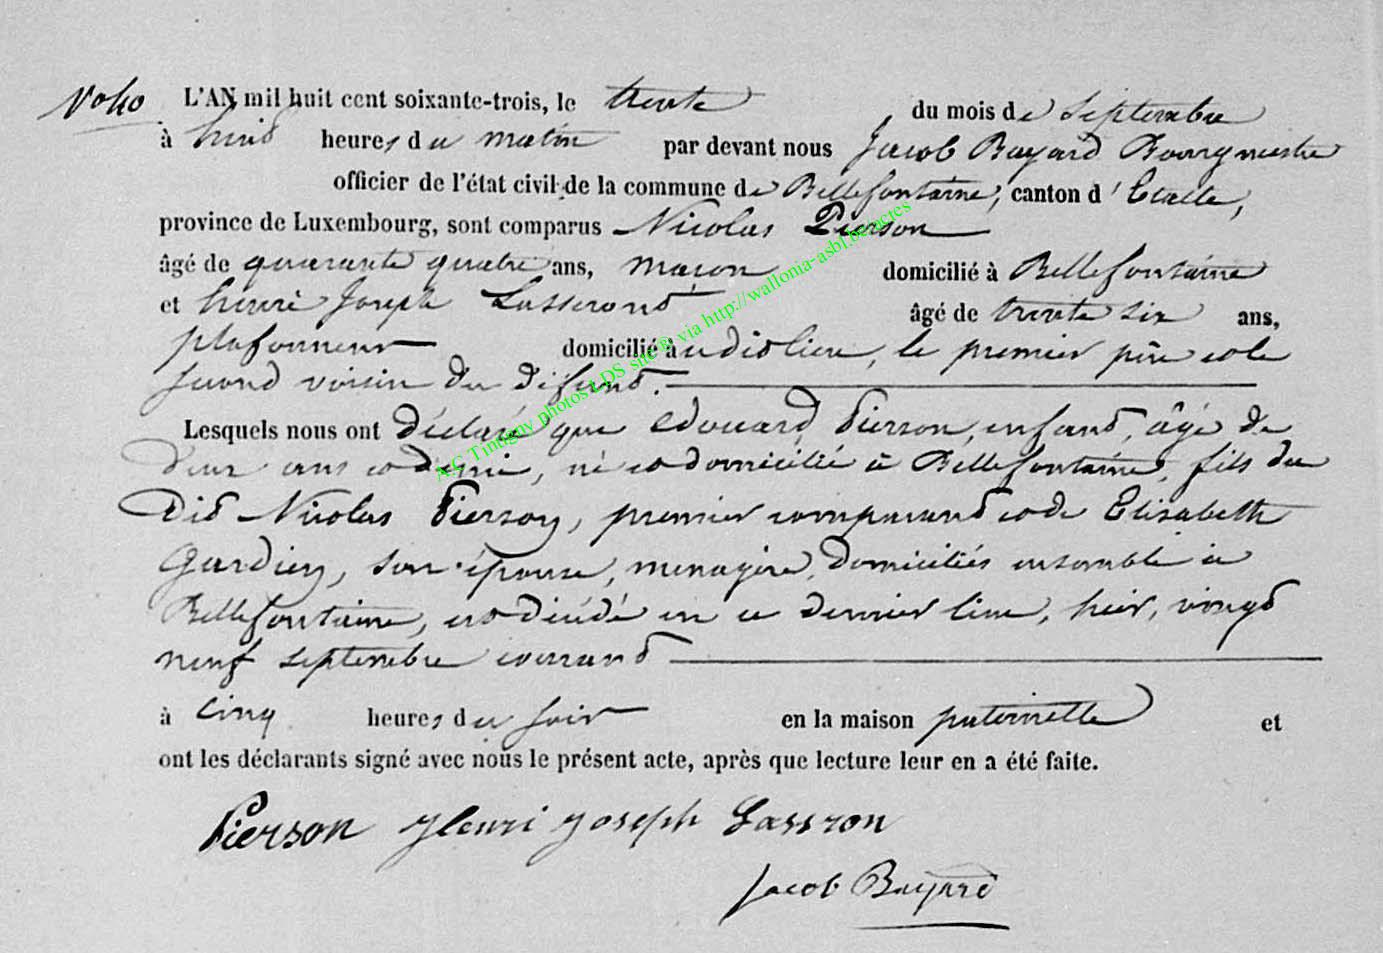 N° 40. L'AN mil huit cent soixante-trois, le trente du mois de Septembre
à huit heures du matin par devant nous Jacob Bayard Bourgmestre
officier de l'état civil de la commune de Bellefontaine, canton d'Etalle,
province de Luxembourg, sont comparus Nicolas Pierson
âgé de quarante quatre ans, maçon domicilié à Bellefontaine
et henri Joseph Lasseront âgé de trente six ans,
plafonneur domicilié à udit lieu, le premier père et le
second voisin du défunt.
Lesquels nous ont déclaré que edouard Pierson, enfant, âgé de
deux ans et demi, né et domicilié à Bellefontaine, fils du
dit Nicolas Pierson, premier comparant et de Elisabeth
Gardien, son épouse, menagère, domiciliés ensemble à
Bellefontaine, est décédé en ce dernier lieu, hier, vingt
neuf septembre courant
à cinq heures du soir en la maison paternelle et
ont les déclarants signé avec nous le présent acte, après que lecture leur en a été faite.
Pierson Henri Joseph Lassron
Jacob Bayard
A.C Tintigny photos LDS site® via http://wallonia-asbl.be/actes